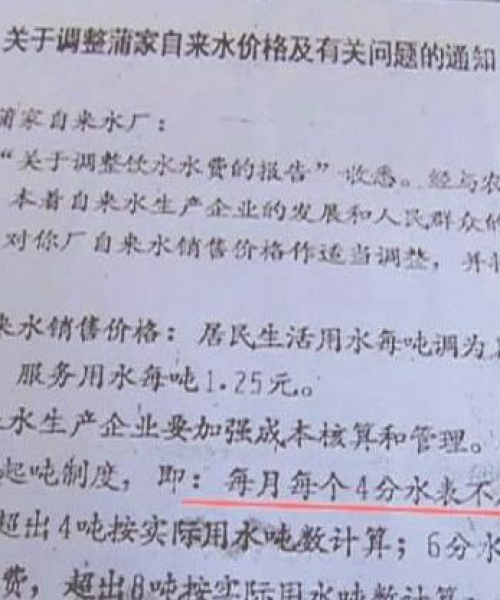 关于调整蒲家自来水价格及有关问题的通知
蒲家自来水厂：
“关于调整饮水水费的报告”收悉。经与农
本着自来水生产企业的发展和人民群众的
对你厂自来水销售价格作适当调整，并
来水销售价格：居民生活用水每吨调为1
服务用水每吨1.25元。
水生产企业要加强成本核算和管理。
起吨制度，即：每月每个4分水表不
超出4吨按实际用水吨数计算；6分水
费，超出8吨按实际用水吨数计算